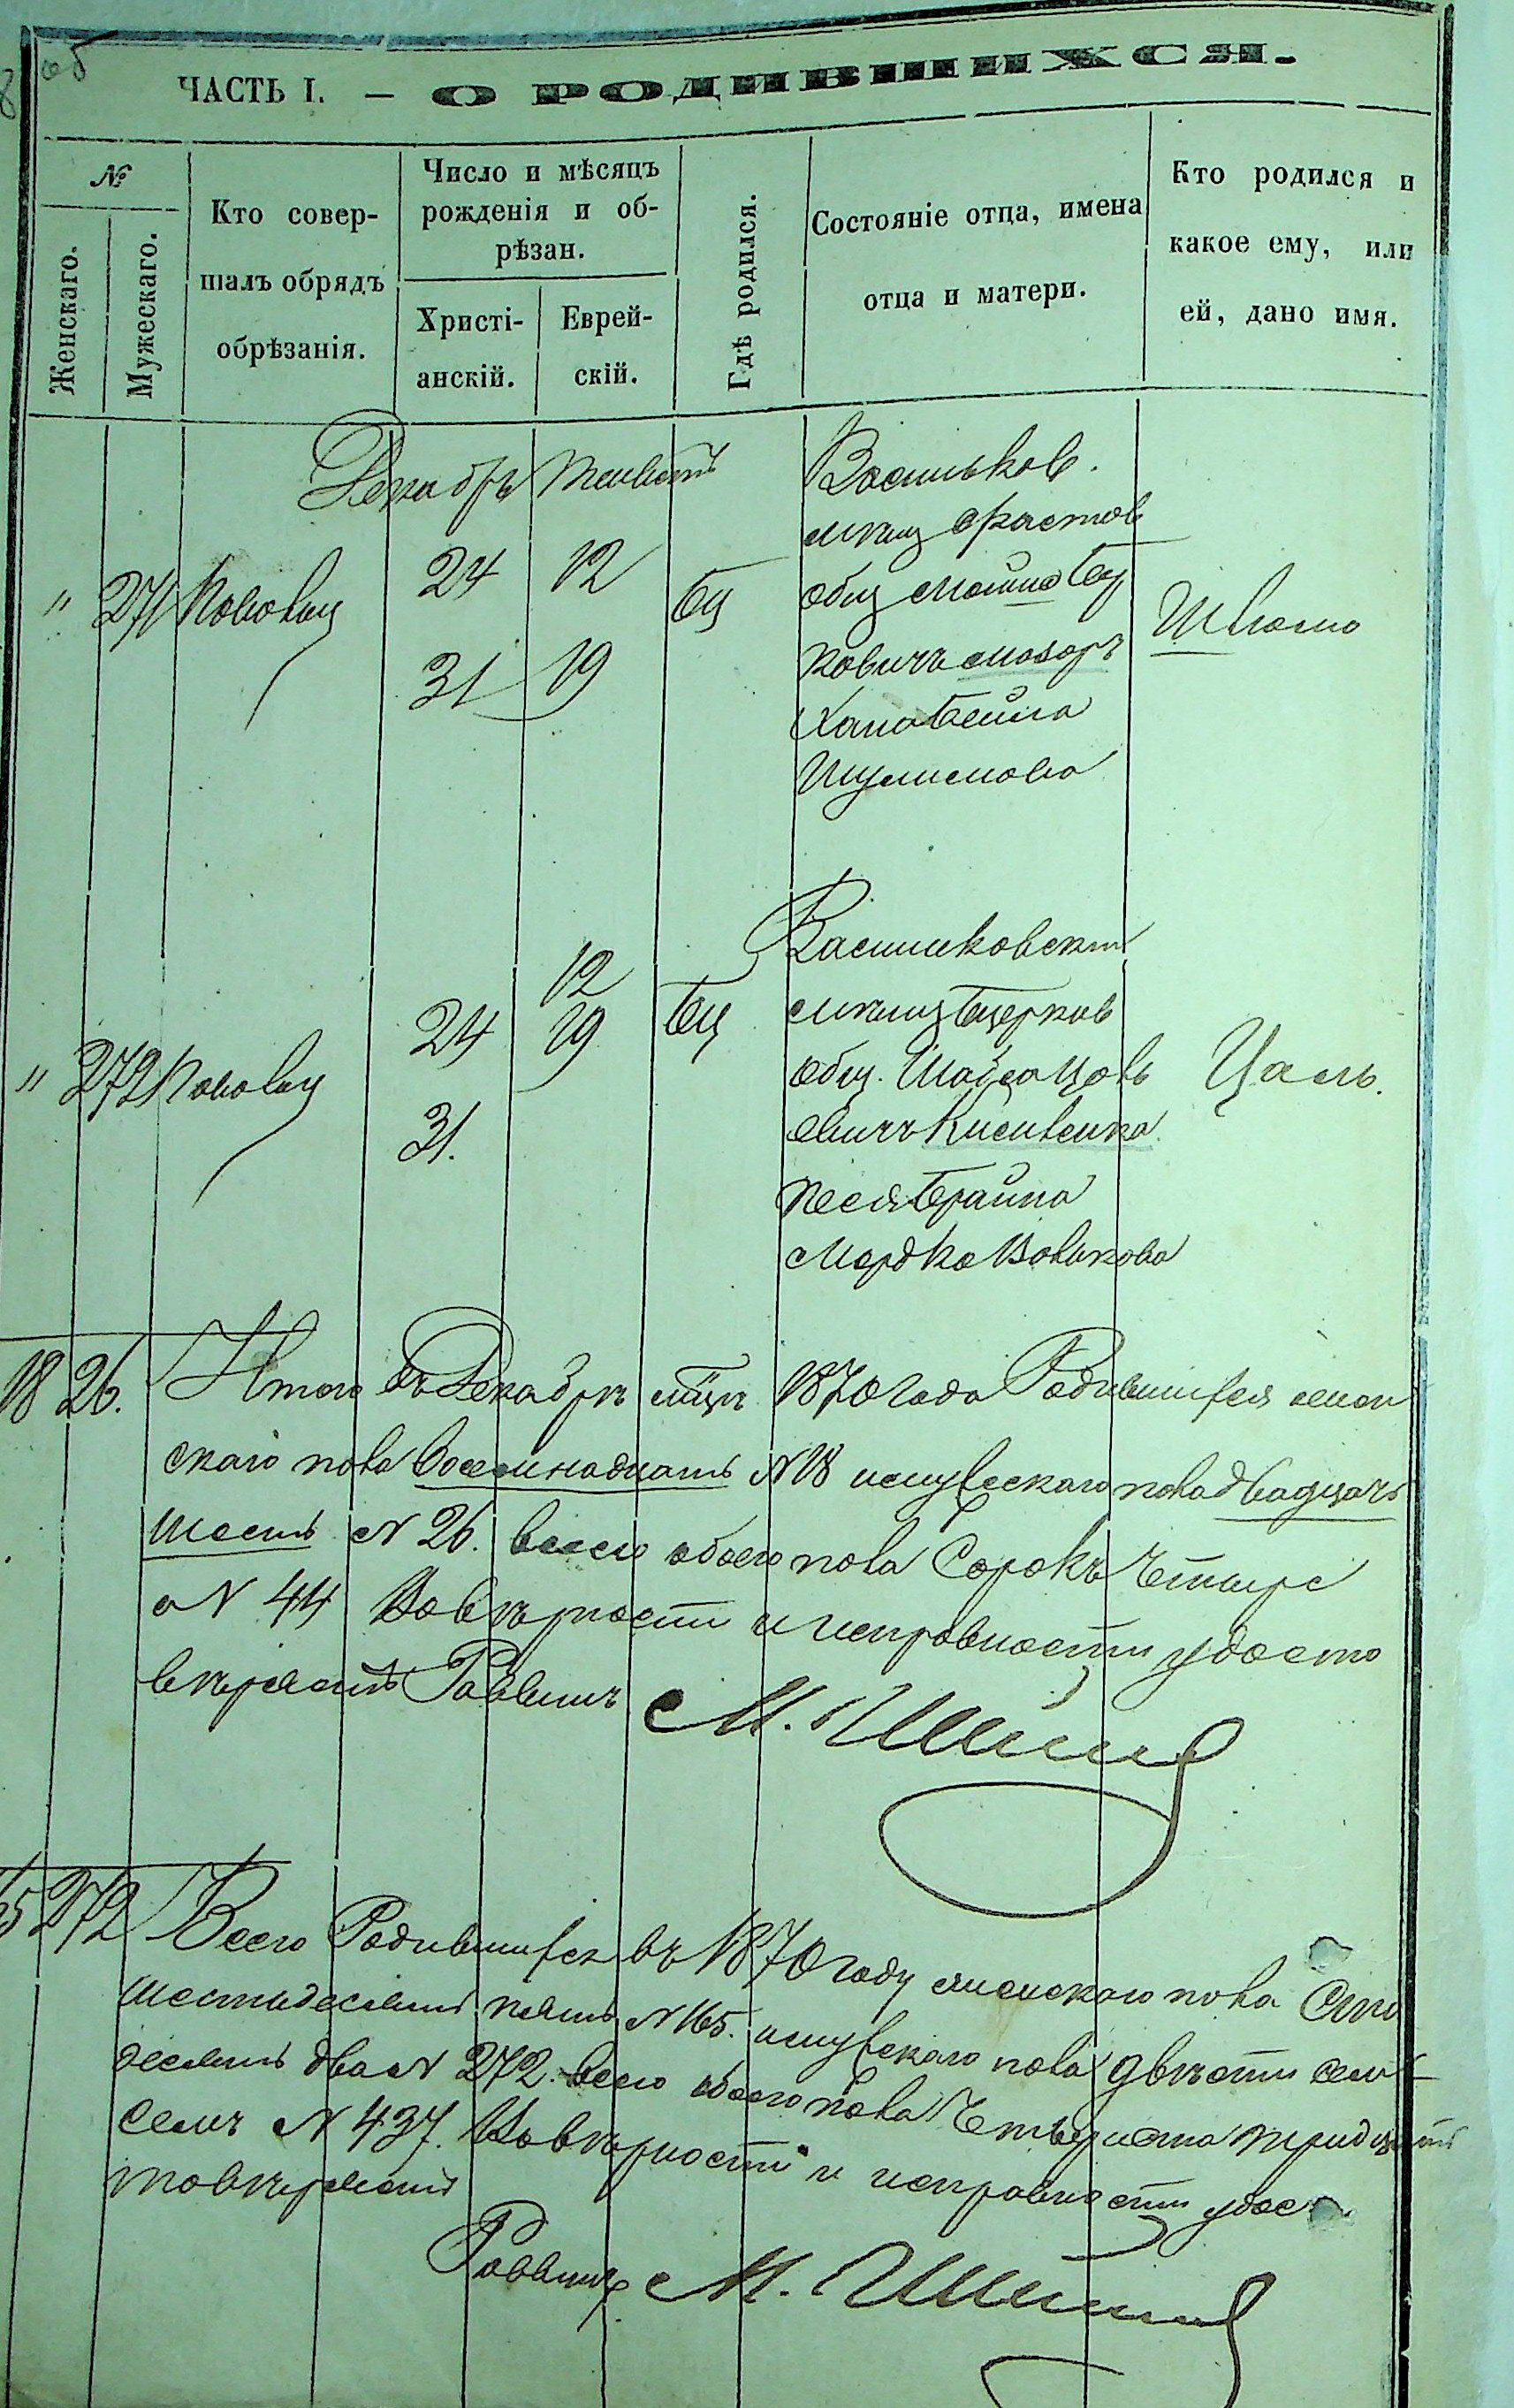 об
ЧАСТЬ I. — О РОДИВШИХСЯ.
№
Женскаго.
Мужескаго.
Кто совер-
шалъ обрядъ
обрѣзанія.
Число и мѣсяцъ
рожденія и об-
рѣзан.
Христі-
анскій.
Еврей-
скій.
Гдѣ родился.
Состояніе отца, имена
отца и матери.
Кто родился и
какое ему, или
ей, дано имя.
Декабрь Тейветъ
" 271
24 12
31 19
БЦ
Васильков.
мѣщ Фастов
общ Мошко Бер
ковичъ Мазоръ
Хана Бейла
Шулимова
Шлiомо
" 272
24 12
31. 19
БЦ
Васильковскій
мѣщ БЦерков
общ.
Песя Брайна
Мордко Волькова
18 26. Итого въ Декабрѣ мѣцѣ 1870 года Родившихся жен
скаго пола восемнадцать № 18 мужескаго пола двадцать
шесть № 26. всего обоего пола Сорокъ четыре
№ 44 Вовѣрности и исправности удосто
вѣряетъ Раввинъ М.
272 Всего Родившихся въ 1870 году женскаго пола Сто
шестьдесятъ пять № 165. мужескаго пола двѣсти семь
десятъ два № 272. всего обоего пола четыреста тридцать
семь № 437. Вовѣрности и исправности удос
товѣряетъ
Раввинъ М.